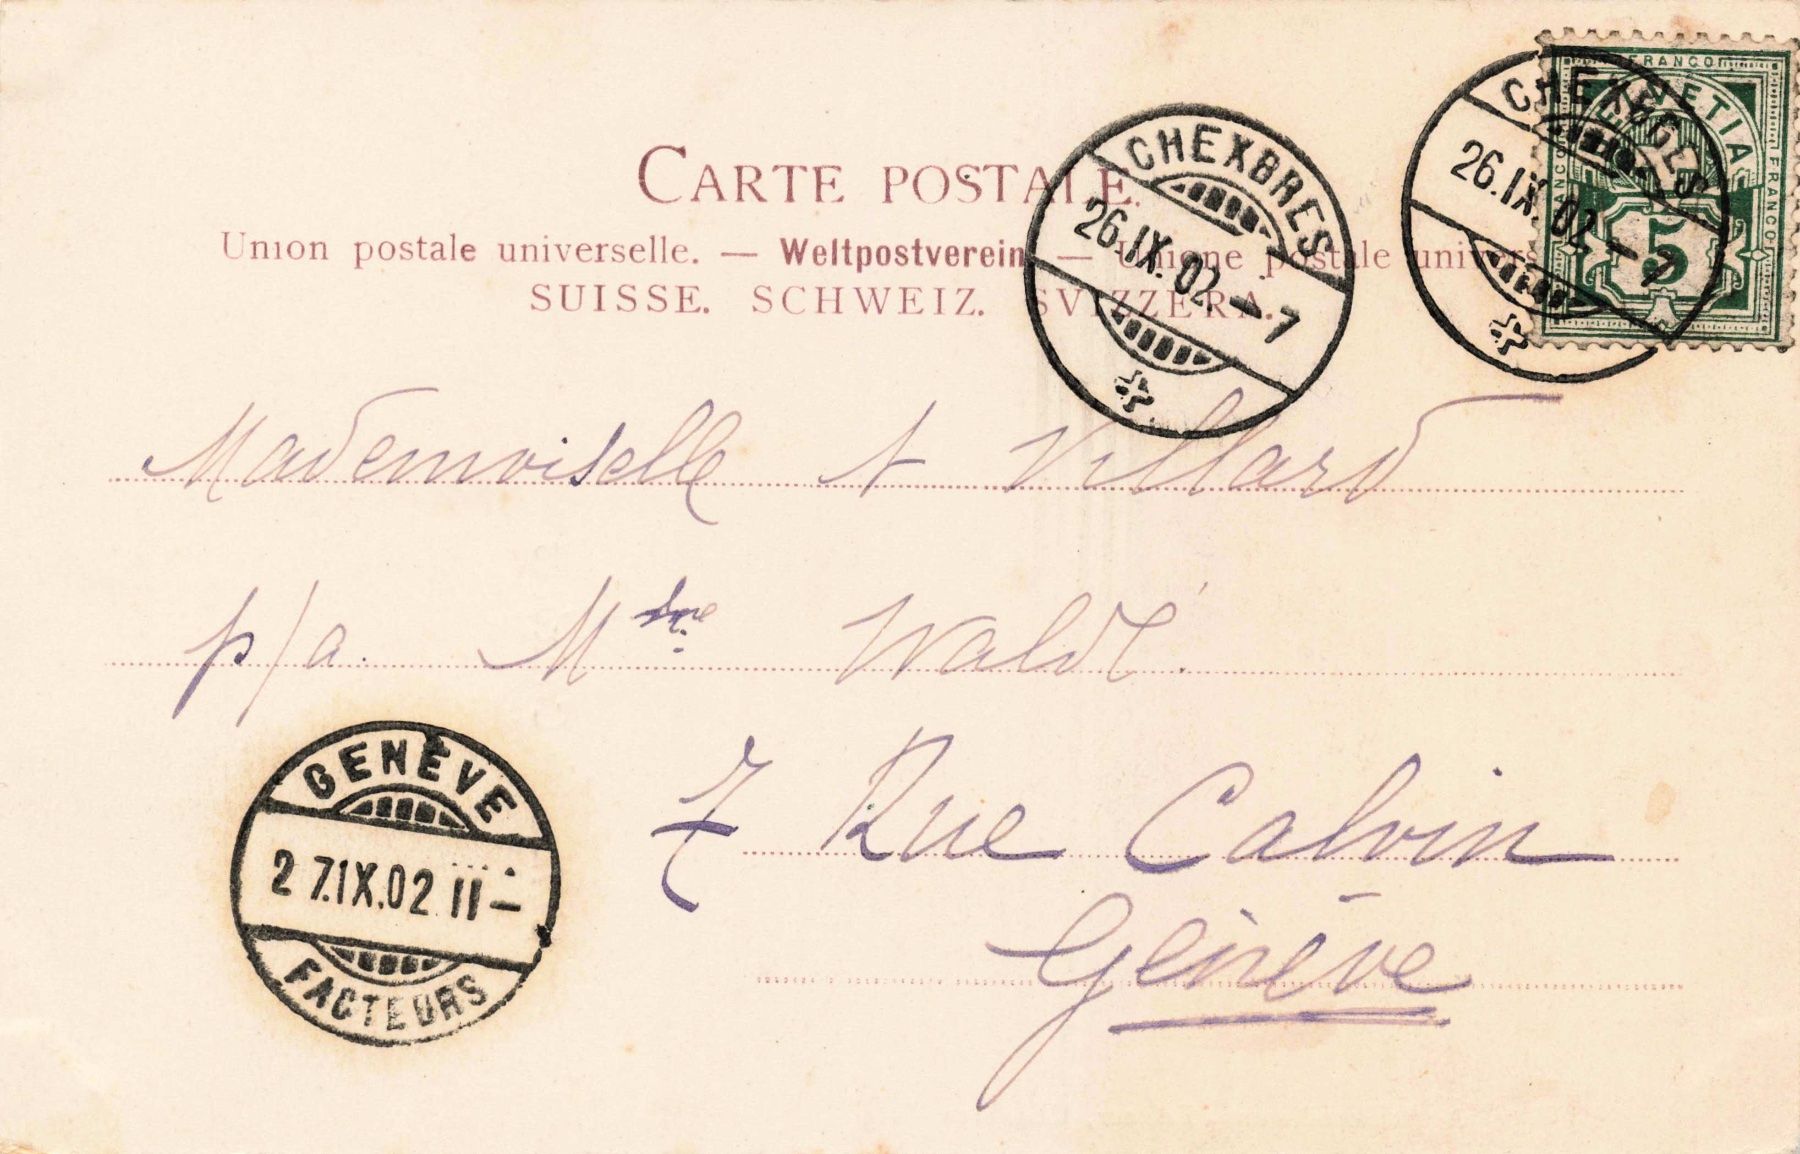 FRANCO
HELVETIA
FRANCO
FRANCO
5
CHEXBRES
26.IX.02–7
CHEXBRES
26.IX.02–7
CARTE POSTALE.
Union postale universelle. — Weltpostverein — Unione postale univers
SUISSE. SCHWEIZ. SVIZZERA.
Mademoiselle A Villard
p/a. Mme Waldt.
7 Rue Calvin
Genève
GENÈVE
27.IX.02 11–
FACTEURS